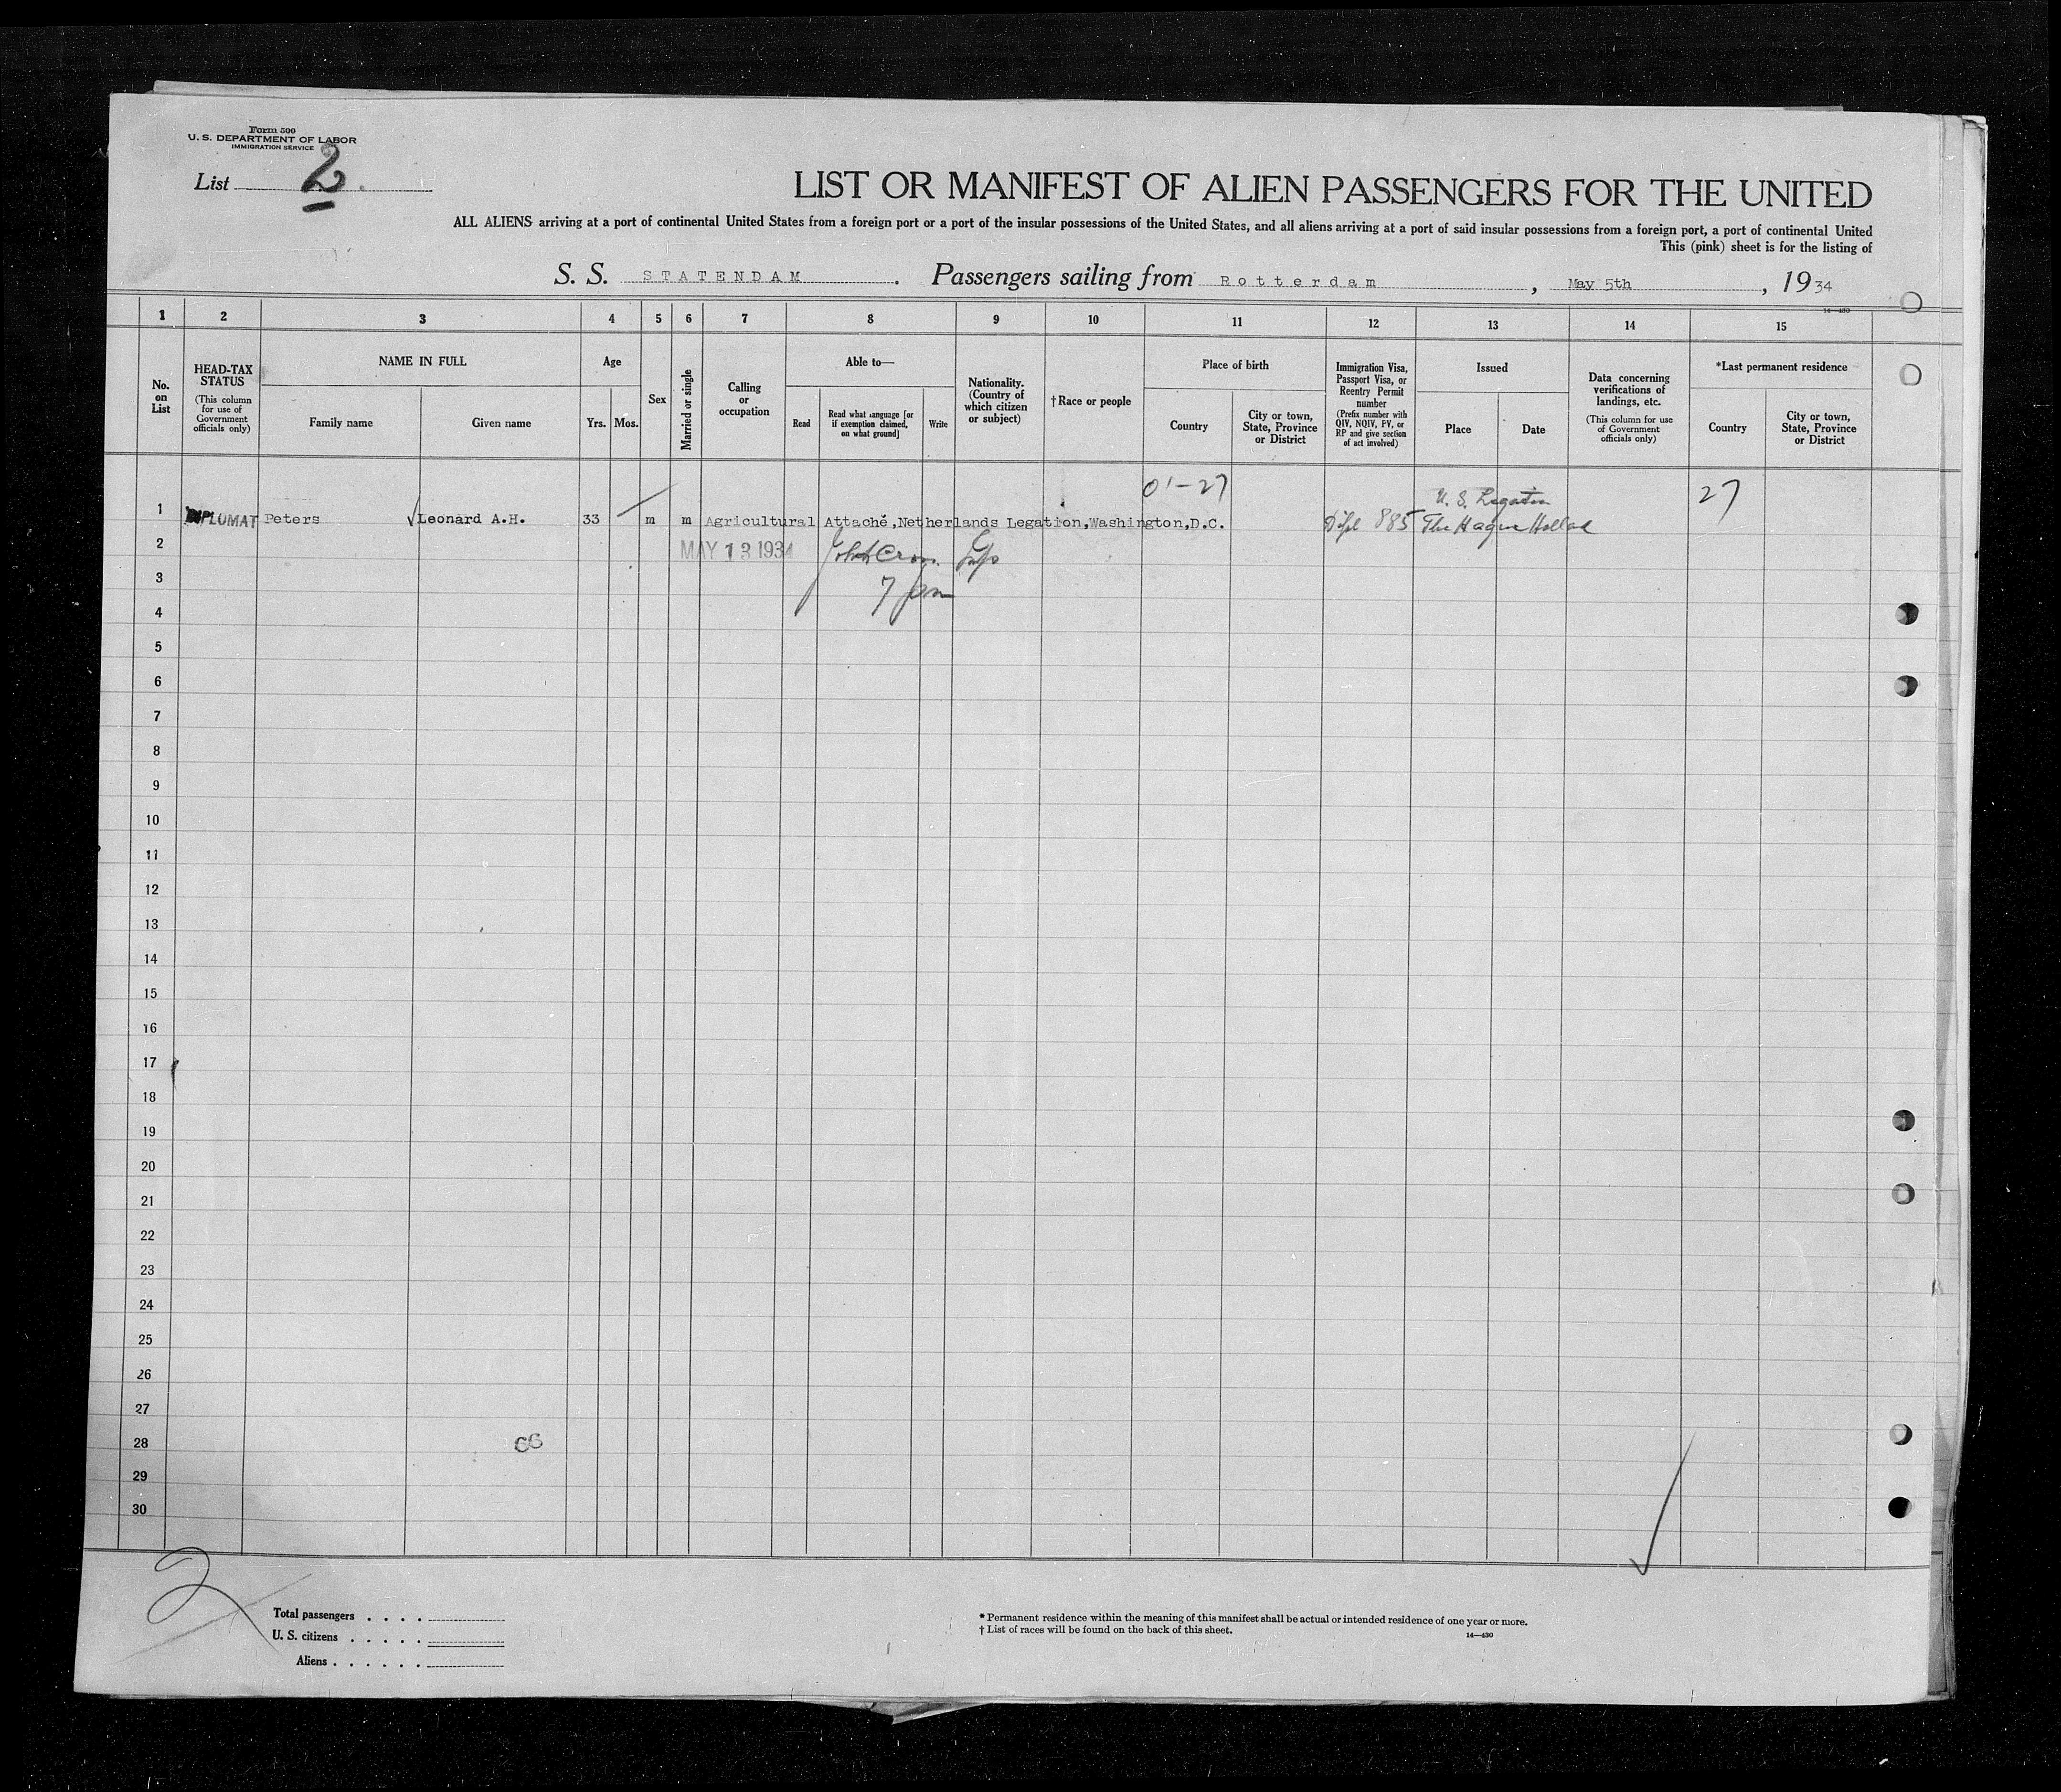 Form 500
U. S. DEPARTMENT OF LABOR
IMMIGRATION SERVICE
List 2
LIST OR MANIFEST OF ALIEN PASSENGERS FOR THE UNITED
ALL ALIENS arriving at a port of continental United States from a foreign port or a port of the insular possessions of the United States, and all aliens arriving at a port of said insular possessions from a foreign port, a port of continental United
This (pink) sheet is for the listing of
S. S. STATENDAM. Passengers sailing from Rotterdam, May 5th, 1934
14—430
1 2 3 4 5 6 7 8 9 10 11 12 13 14 15
No. on List
HEAD-TAX STATUS
(This column for use of Government officials only)
NAME IN FULL
Family name
Given name
Age
Yrs.
Mos.
Sex
Married or single
Calling or occupation
Able to—
Read
Read what language [or if exemption claimed, on what ground]
Write
Nationality. (Country of which citizen or subject)
†Race or people
Place of birth
Country
City or town, State, Province or District
Immigration Visa, Passport Visa, or Reentry Permit number
(Prefix number with QIV, NQIV, PV, or RP and give section of act involved)
Issued
Place
Date
Data concerning verifications of landings, etc.
(This column for use of Government officials only)
*Last permanent residence
Country
City or town, State, Province or District
01-27
U. S. Legation
27
1 DIPLOMAT Peters √ Leonard A.H. 33 m m Agricultural Attaché,Netherlands Legation,Washington,D.C. Dipl 885 The Hague Holland
2 MAY 13 1934
3 7 pm
4
5
6
7
8
9
10
11
12
13
14
15
16
17
18
19
20
21
22
23
24
25
26
27
28 66
29
30
2
Total passengers
U. S. citizens
Aliens
* Permanent residence within the meaning of this manifest shall be actual or intended residence of one year or more.
† List of races will be found on the back of this sheet.
14—430